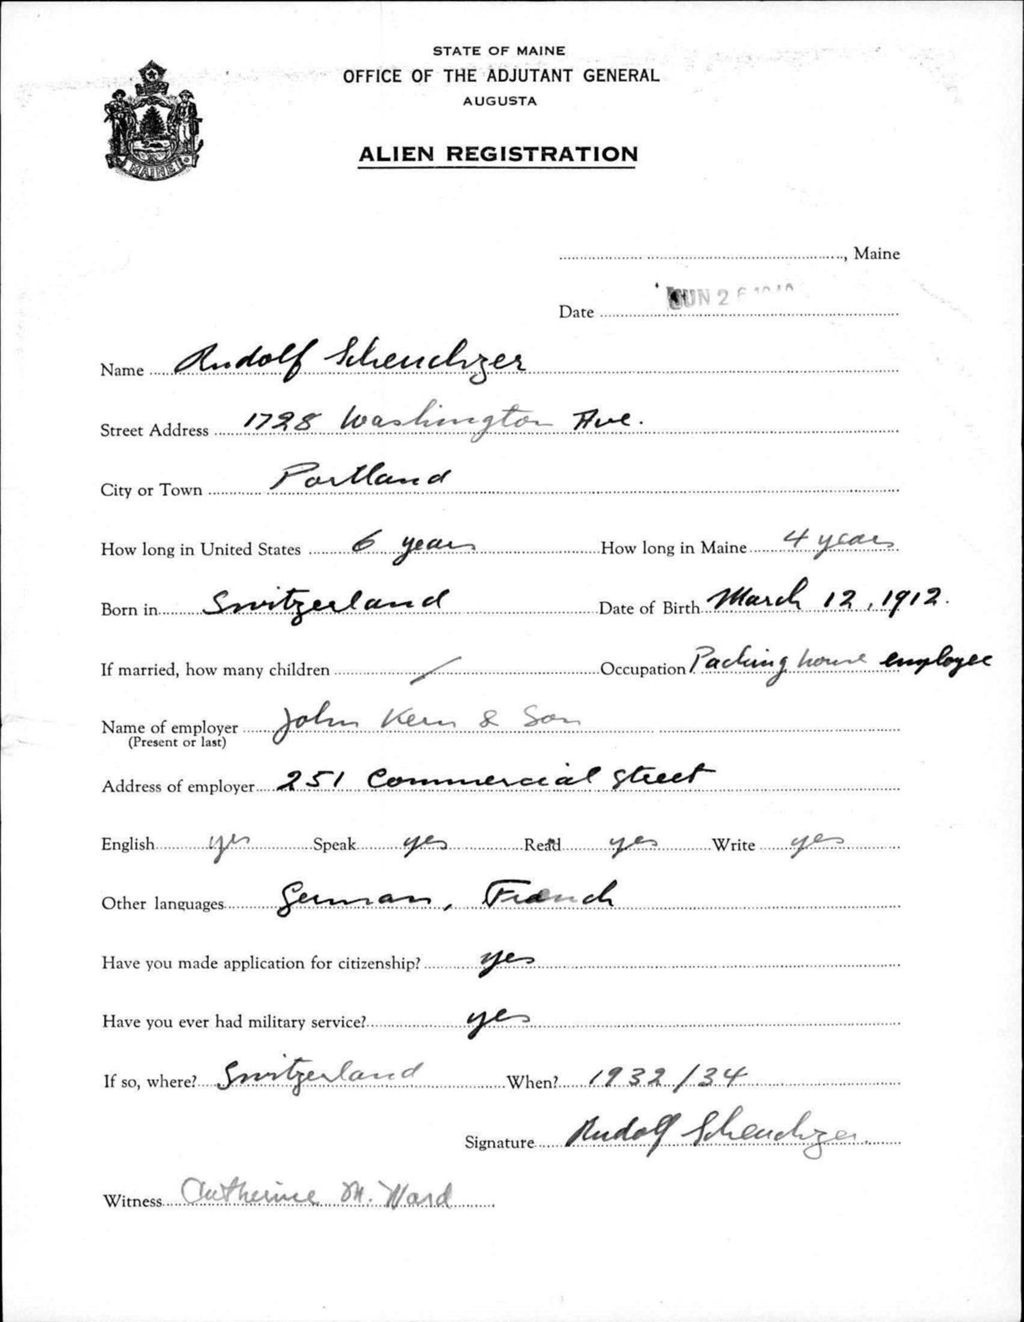 STATE OF MAINE
OFFICE OF THE ADJUTANT GENERAL
AUGUSTA
ALIEN REGISTRATION
MAINE
, Maine
Date JUN 26 1940
Name Rudolf Scheuchzer
Street Address 1728 Washington Ave.
City or Town Portland
How long in United States 6 years How long in Maine 4 years
Born in Switzerland Date of Birth March 12, 1912.
If married, how many children / Occupation Packing house employee
Name of employer John Kern & Son
(Present or last)
Address of employer 251 Commercial Street
English yes Speak yes Read yes Write yes
Other languages German, French
Have you made application for citizenship? yes
Have you ever had military service? yes
If so, where? Switzerland When? 1932/34
Signature Rudolf Scheuchzer
Witness Catherine M. Ward